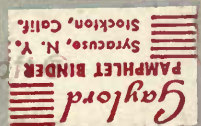 Gaylord
PAMPHLET BINDER
Syracuse, N. Y.
Stockton, Calif.